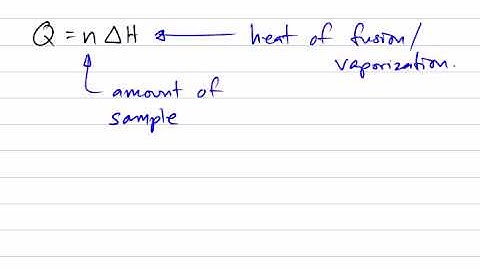 Q = n ΔH ← heat of fusion/
vaporization.
amount of
sample